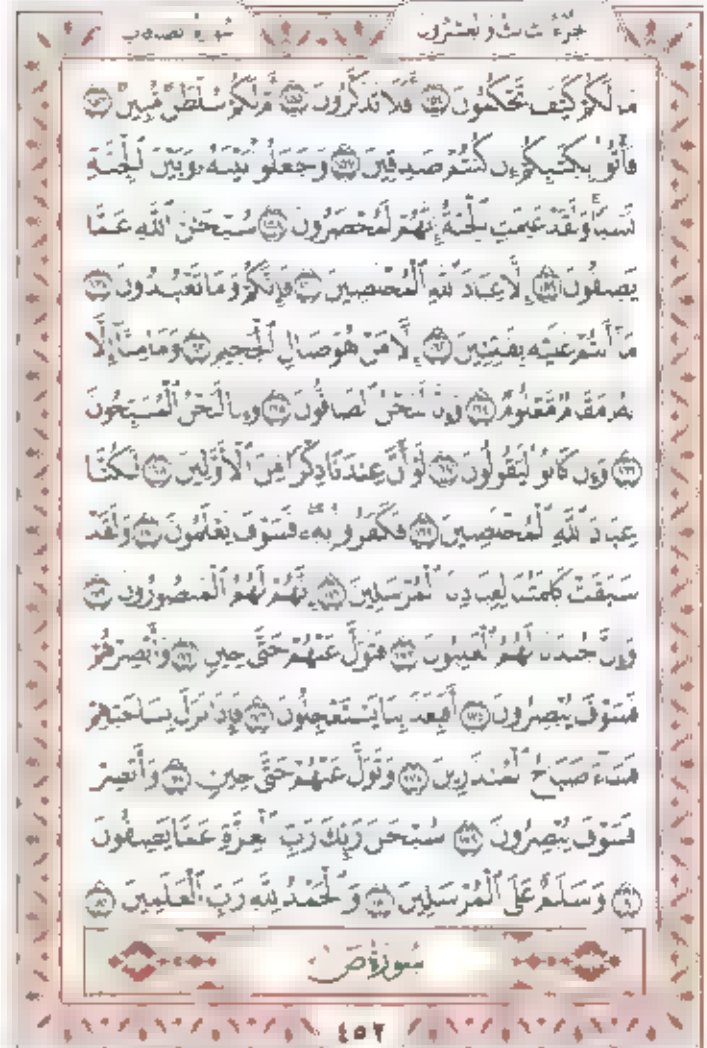 الجزء الثالث والعشرون سورة الصافات
ما لكم كيف تحكمون ١٥٤ أفلا تذكرون ١٥٥ أم لكم سلطن مبين ١٥٦
فأتوا بكتبكم إن كنتم صدقين ١٥٧ وجعلوا بينه وبين الجنة
نسبا ولقد علمت الجنة إنهم لمحضرون ١٥٨ سبحن الله عما
يصفون ١٥٩ إلا عباد الله المخلصين ١٦٠ فإنكم وما تعبدون ١٦١
ما أنتم عليه بفتنين ١٦٢ إلا من هو صال الجحيم ١٦٣ وما منا إلا
له مقام معلوم ١٦٤ وإنا لنحن الصافون ١٦٥ وإنا لنحن المسبحون
١٦٦ وإن كانوا ليقولون ١٦٧ لو أن عندنا ذكرا من الأولين ١٦٨ لكنا
عباد الله المخلصين ١٦٩ فكفروا به فسوف يعلمون ١٧٠ ولقد
سبقت كلمتنا لعبادنا المرسلين ١٧١ إنهم لهم المنصورون ١٧٢
وإن جندنا لهم الغلبون ١٧٣ فتول عنهم حتى حين ١٧٤ وأبصرهم
فسوف يبصرون ١٧٥ أفبعذابنا يستعجلون ١٧٦ فإذا نزل بساحتهم
فساء صباح المنذرين ١٧٧ وتول عنهم حتى حين ١٧٨ وأبصر
فسوف يبصرون ١٧٩ سبحن ربك رب العزة عما يصفون
١٨٠ وسلم على المرسلين ١٨١ والحمد لله رب العلمين ١٨٢
سورة ص
٤٥٢